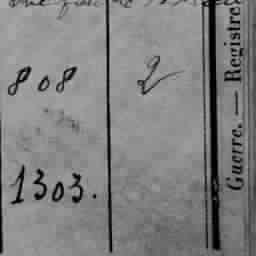 808 2
1303.
Guerre. — Registre